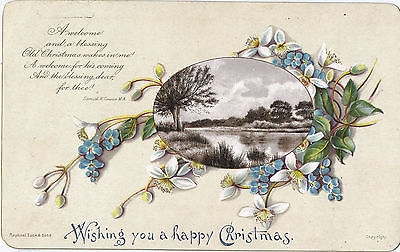 A welcome
and a blessing
Old Christmas wakes in me!
A welcome for his coming
And the blessing, dear,
for thee!
Samuel K. Cowan M.A.
Wishing you a happy Christmas.
Raphael Tuck & Sons
Copyright.